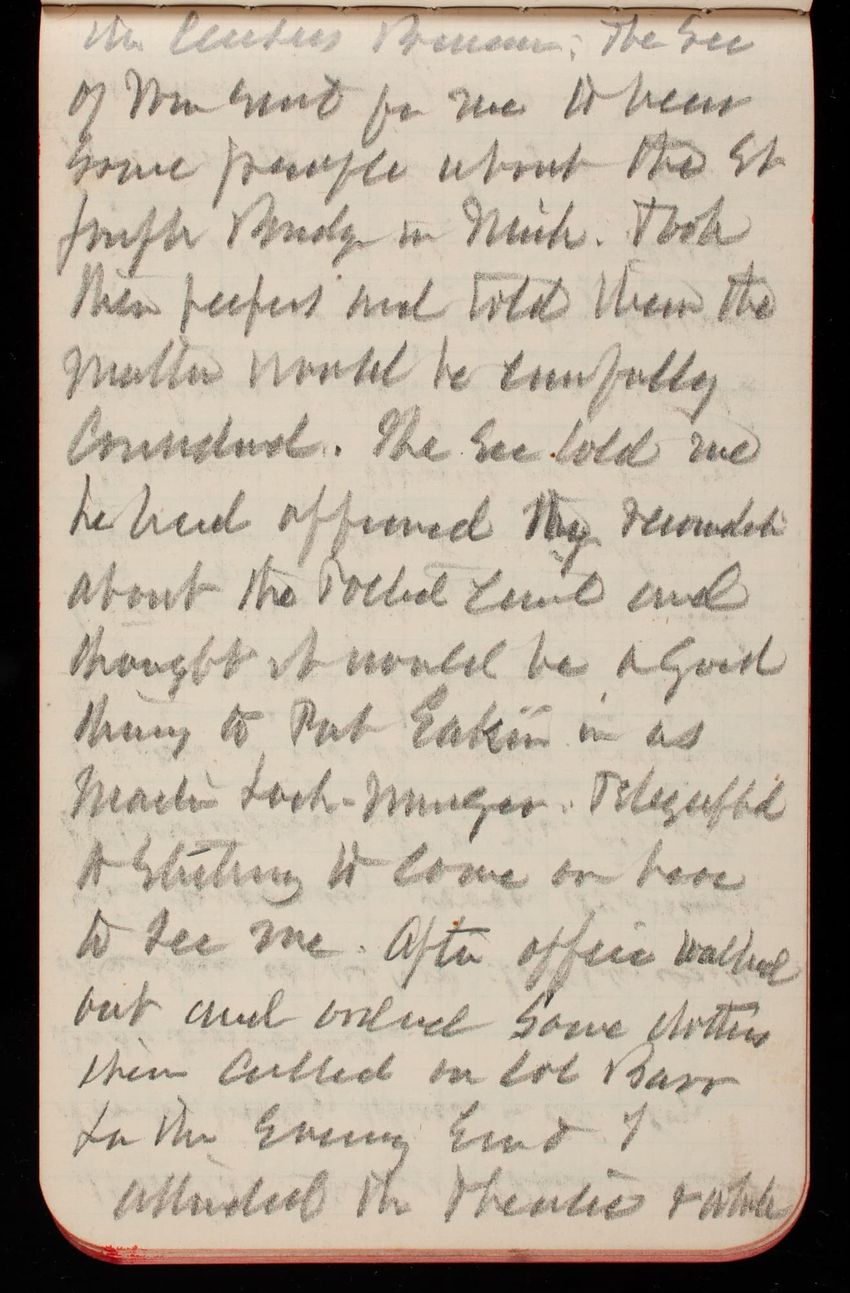 the Census Bureau. The Sec
of War sent for me to hear
some people about the St
Joseph Bridge in Mich. Took
their papers and told them the
matter would be carefully
Considered. The Sec told me
he had approved my
about the and
thought it would be a good
thing to Put Eakin in as
Lock-. Telegraphed
to to come on here
to see me. After office walked
out and ordered some clothes
then called on Col Barr
In the Evening Emt & I
attended the Theatre &